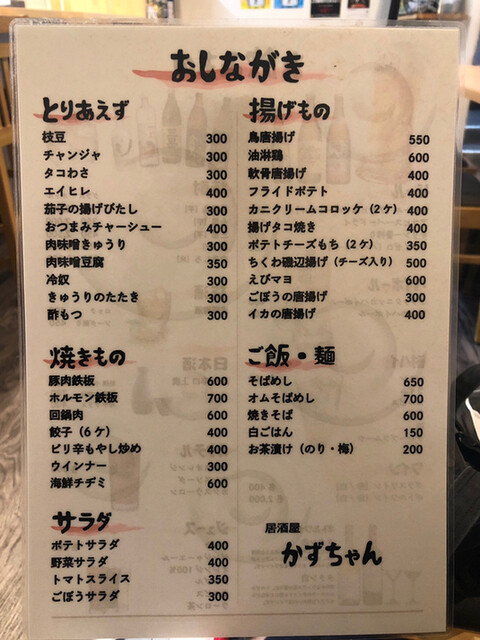 おしながき
とりあえず
枝豆 300
チャンジャ 300
タコわさ 300
エイヒレ 400
茄子の揚げびたし 300
おつまみチャーシュー 400
肉味噌きゅうり 300
肉味噌豆腐 350
冷奴 300
きゅうりのたたき 300
酢もつ 300
焼きもの
豚肉鉄板 600
ホルモン鉄板 700
回鍋肉 600
餃子(6ケ) 400
ピリ辛もやし炒め 400
ウインナー 300
海鮮チヂミ 600
サラダ
ポテトサラダ 400
野菜サラダ 400
トマトスライス 350
ごぼうサラダ 300
揚げもの
鳥唐揚げ 550
油淋鶏 600
軟骨唐揚げ 400
フライドポテト 400
カニクリームコロッケ(2ケ) 400
揚げタコ焼き 400
ポテトチーズもち(2ケ) 350
ちくわ磯辺揚げ(チーズ入り) 500
えびマヨ 600
ごぼうの唐揚げ 300
イカの唐揚げ 400
ご飯・麺
そばめし 650
オムそばめし 700
焼きそば 600
白ごはん 150
お茶漬け(のり・梅) 200
居酒屋
かずちゃん